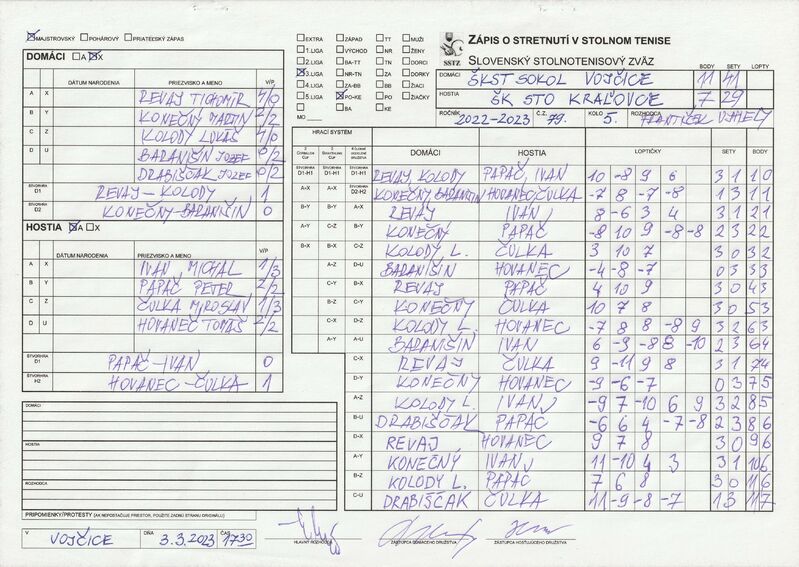 MAJSTROVSKÝ POHÁROVÝ PRIATEĽSKÝ ZÁPAS
DOMÁCI A X
DÁTUM NARODENIA PRIEZVISKO A MENO V/P
A X REVAJ TICHOMÍR 4/0
B Y KONEČNÝ MARTIN 2/2
C Z KOLODY LUKÁŠ 4/0
D U BARANIŠIN JOZEF 0/2
DRABIŠČAK JOZEF 0/2
ŠTVORHRA D1 REVAJ-KOLODY 1
ŠTVORHRA D2 KONEČNÝ-BARANIŠIN 0
HOSTIA A X
DÁTUM NARODENIA PRIEZVISKO A MENO V/P
A X IVAN, MICHAL 1/3
B Y PAPAČ PETER 2/2
C Z ČULKA MIROSLAV 1/3
D U HOVANEC TOMÁŠ 2/2
ŠTVORHRA PAPAČ-IVAN 0
ŠTVORHRA H2 HOVANEC-ČULKA 1
DOMÁCI
HOSTIA
ROZHODCA
PRIPOMIENKY/PROTESTY (AK NEPOSTAČUJE PRIESTOR, POUŽITE ZADNÚ STRANU ORIGINÁLU)
V VOJČICE DŇA 3.3.2023 ČAS 17 30
HLAVNÝ ROZHODCA ZÁSTUPCA DOMÁCEHO DRUŽSTVA ZÁSTUPCA HOSŤUJÚCEHO DRUŽSTVA
EXTRA ZÁPAD TT MUŽI
1.LIGA VÝCHOD NR ŽENY
2.LIGA BA-TT TN DORCI
3.LIGA NR-TN ZA DORKY
4.LIGA ZA-BB BB ŽIACI
5.LIGA PO-KE PO ŽIAČKY
BA KE
MO
SSTZ
ZÁPIS O STRETNUTÍ V STOLNOM TENISE
SLOVENSKÝ STOLNOTENISOVÝ ZVÄZ
BODY SETY LOPTY
DOMÁCI ŠKST SOKOL VOJČICE 11 41
HOSTIA ŠK STO KRAĽOVCE 7 29
ROČNÍK 2022-2023 Č.Z. 79. KOLO 5. ROZHODCA FRANTIŠEK
HRACÍ SYSTÉM
DOMÁCI HOSTIA LOPTIČKY SETY BODY
D1-H1 D1-H1 D1-H1 REVAJ KOLODY PAPAČ, IVAN 10 -8 9 6 3 1 1 0
A-X A-X D2-H2 KONEČNÝ BARANIŠIN HOVANEC ČULKA -7 8 -7 -8 1 3 1 1
B-Y B-Y A-X REVAJ IVAN 8 -6 3 4 3 1 2 1
A-Y C-Z B-Y KONEČNÝ PAPAČ -8 10 9 -8 -8 2 3 2 2
B-X B-X C-Z KOLODY L. ČULKA 3 10 7 3 0 3 2
A-Z D-U BARANIŠIN HOVANEC -4 -8 -7 0 3 3 3
C-Y B-X REVAJ PAPAČ 4 10 9 3 0 4 3
B-Z C-Y KONEČNÝ ČULKA 10 7 8 3 0 5 3
C-X D-Z KOLODY L. HOVANEC -7 8 8 -8 9 3 2 6 3
A-Y A-U BARANIŠIN IVAN 6 -9 -8 8 -10 2 3 6 4
C-X REVAJ ČULKA 9 -11 9 8 3 1 7 4
D-Y KONEČNÝ HOVANEC -9 -6 -7 0 3 7 5
A-Z KOLODY L. IVAN -9 7 -10 6 9 3 2 8 5
B-U DRABIŠČAK PAPAČ -6 6 4 -7 -8 2 3 8 6
D-X REVAJ HOVANEC 9 7 8 3 0 9 6
A-Y KONEČNÝ IVAN 11 -10 4 3 3 1 10 6
B-Z KOLODY L. PAPAČ 7 6 8 3 0 11 6
C-U DRABIŠČAK ČULKA 11 -9 -8 -7 1 3 11 7